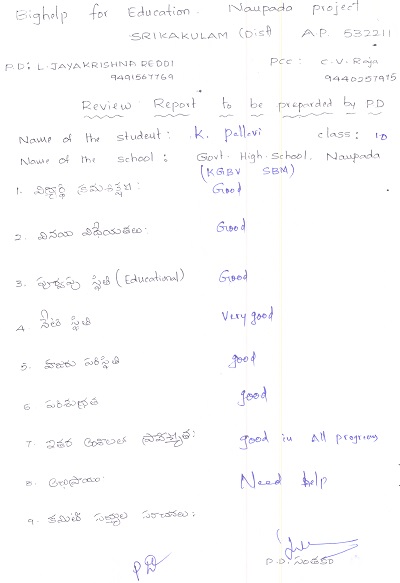 Bighelp for Education. Naupada project
SRIKAKULAM (Dist) A.P. 532211
P.D: L. JAYAKRISHNA REDDI PCC: C.V. Raja
9491567769 9440257975
Review Report to be preparded by PD
Name of the student: K. Pallavi class: 10
Name of the school: Govt. High-School. Naupada
(KGBV SBM)
1. విద్యార్థి క్రమశిక్షణ: Good
2. వినయ విధేయతలు: Good
3. పూర్వపు స్థితి (Educational) Good
4. నేటి స్థితి Very good
5. హాజరు పరిస్థితి good
6 పరిశుభ్రత good
7. ఇతర అంశాలలో ప్రావీణ్యత: good in All programs
8. అభిప్రాయం: Need help
9. కమిటీ సభ్యుల సూచనలు:
PD P.D. సంతకం